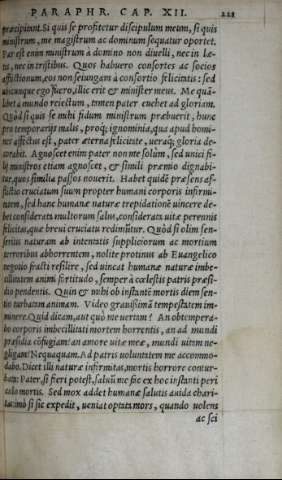 PARAPHR. CAP. XII. 221
præcipiunt. Si quis se profitetur discipulum meum, si quis
ministrum, me magistrum ac dominum sequatur oportet.
Par est enim ministrum à domino non diuelli, nec in læ-
tis, nec in tristibus. Quos habuero consortes ac socios
afflictionum, eos non seiungam à consortio felicitatis: sed
ubicunque ego fuero, illic erit & minister meus. Me quã-
libet à mundo reiectum, tamen pater euehet ad gloriam.
Quòd si quis se mihi fidum ministrum præbuerit, hunc
pro temporarijs malis, proq; ignominia, qua apud homi-
nes affectus est, pater æterna felicitate, ueraq; gloria de-
corabit. Agnoscet enim pater non me solùm, sed unici fi-
lij ministros etiam agnoscet, & simili præmio dignabi-
tur, quos similia passos nouerit. Habet quidē præsens af-
flictio cruciatum suum propter humani corporis infirmi-
tatem, sed hanc humanæ naturæ trepidationē uincere de-
bet considerata multorum salus, considerata uitæ perennis
felicitas, quæ breui cruciatu redimitur. Quòd si olim sen-
seritis naturam ab intentatis suppliciorum ac mortium
terroribus abhorrentem, nolite protinus ab Euangelico
negotio fracti resilire, sed uincat humanæ naturæ imbe-
cillitatem animi fortitudo, semper à cælestis patris præsi-
dio pendentis. Quin & mihi ob instantē mortis diem sen-
tio turbatum animam. Video grauissimā tempestatem im-
minere. Quid dicam, aut quò me uertam? An obtempera-
bo corporis imbecillitati mortem horrentis, an ad mundi
præsidia cōfugiam? an amore uitæ meæ, mundi uitam ne-
gligam? Nequaquam. Ad patris uoluntatem me accommo-
dabo. Dicet illi naturæ infirmitas, mortis horrore contur-
bata: Pater, si fieri potest, saluū me fac ex hoc instanti peri
culo mortis. Sed mox addet humanæ salutis auida chari-
tas: imò si sic expedit, ueniat optata mors, quando uolens
ac sci